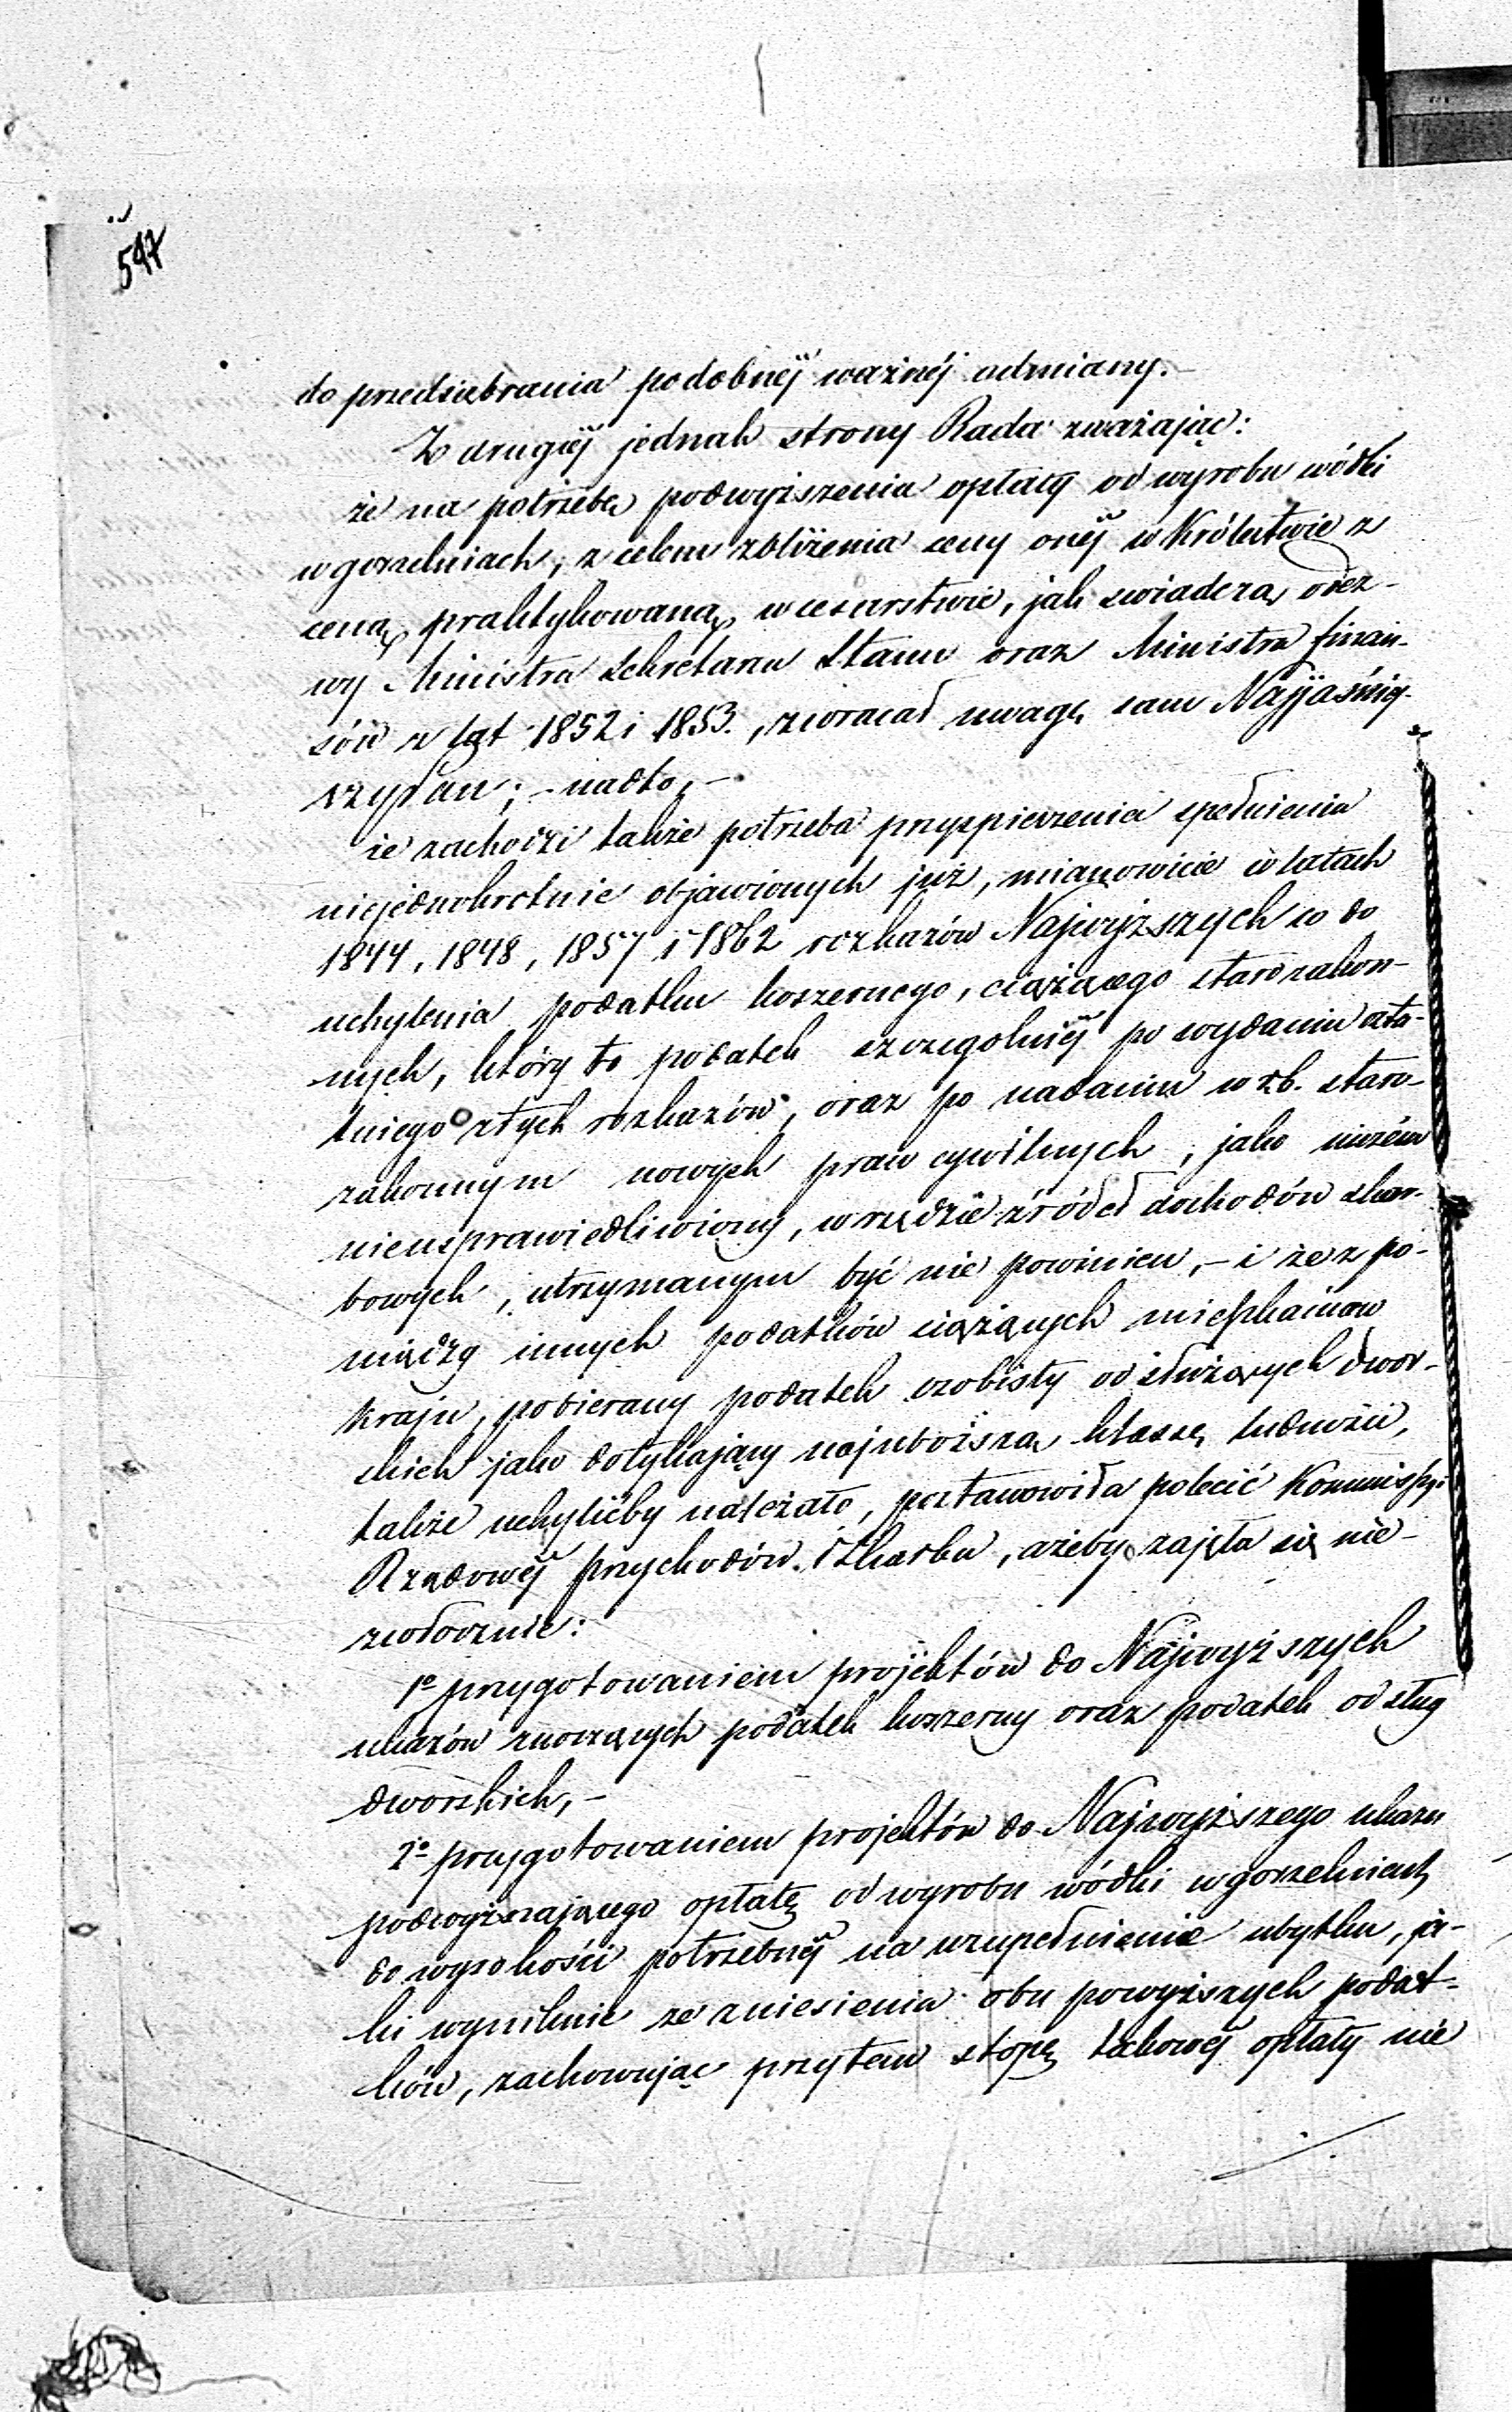 547
do przedsiębrania podobnéj ważnéj odmiany.
Z drugiéj jednak strony Rada zważając:
że na potrzebę podwyższenia opłaty od wyrobu wódki
w gorzelniach, z celem zbliżenia ceny onéj w Królestwie z
ceną praktykowaną w cesarstwie, jak swiadczą odez-
wy Ministra Sekretarza Stanu oraz Ministra finan-
sów z lat 1852 i 1853., zwracał uwagę sam Najjaśniej-
szy Pan; – nadto, –
że zachodzi także potrzeba przyspieszenia spełnienia
niejednokrotnie objawionych już, mianowicie w latach
1844, 1848, 1857 i 1862 rozkazów Najwyższych co do
uchylenia podatku koszernego, ciążącego starozakon-
nych, który to podatek szczególniéj po wydaniu osta-
tniego z tych rozkazów, oraz po nadaniu w r.b. staro-
zakonnym nowych praw cywilnych, jako niczém
nieusprawiedliwiony, w rzędzie źródeł dochodów skar-
bowych, utrzymanym być nie powinien, – i że z po-
między innych podatków ciążących mieszkańców
Kraju, pobierany podatek osobisty od służących dwor-
skich jako dotykający najuboższą klassę ludności,
także uchylićby należało, postanowiła polecić Kommissyi
Rządowéj Przychodów i Skarbu, ażeby zajęła się nie-
zwłocznie:
1º przygotowaniem projektów do Najwyższych
ukazów znoszących podatek koszerny oraz podatek od sług
dworskich, –
2º przygotowaniem projektów do Najwyższego ukazu
podwyższającego opłatę od wyrobu wódki w gorzelniach
do wysokości potrzebnéj na uzupełnienie ubytku, ja-
ki wyniknie ze zniesienia obu powyższych podat-
ków, zachowując przytem stopę takowéj opłaty nie